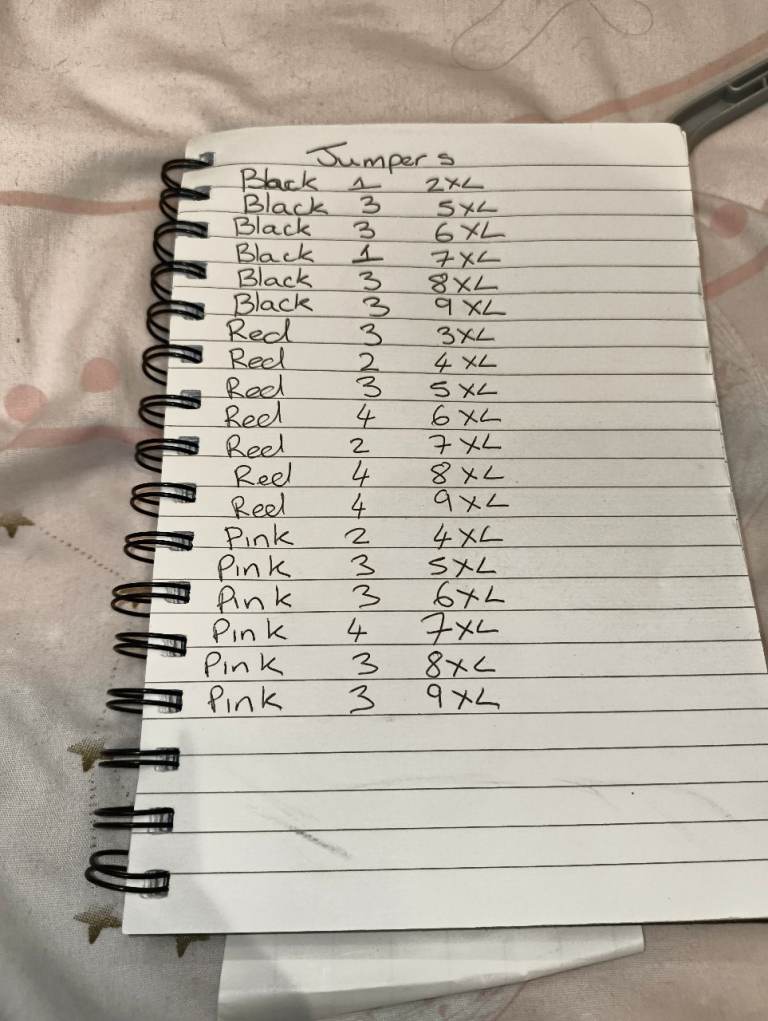 Jumpers
Black 1 2XL
Black 3 5XL
Black 3 6XL
Black 1 7XL
Black 3 8XL
Black 3 9XL
Red 3 3XL
Red 2 4XL
Red 3 5XL
Red 4 6XL
Red 2 7XL
Red 4 8XL
Red 4 9XL
Pink 2 4XL
Pink 3 5XL
Pink 3 6XL
Pink 4 7XL
Pink 3 8XL
Pink 3 9XL